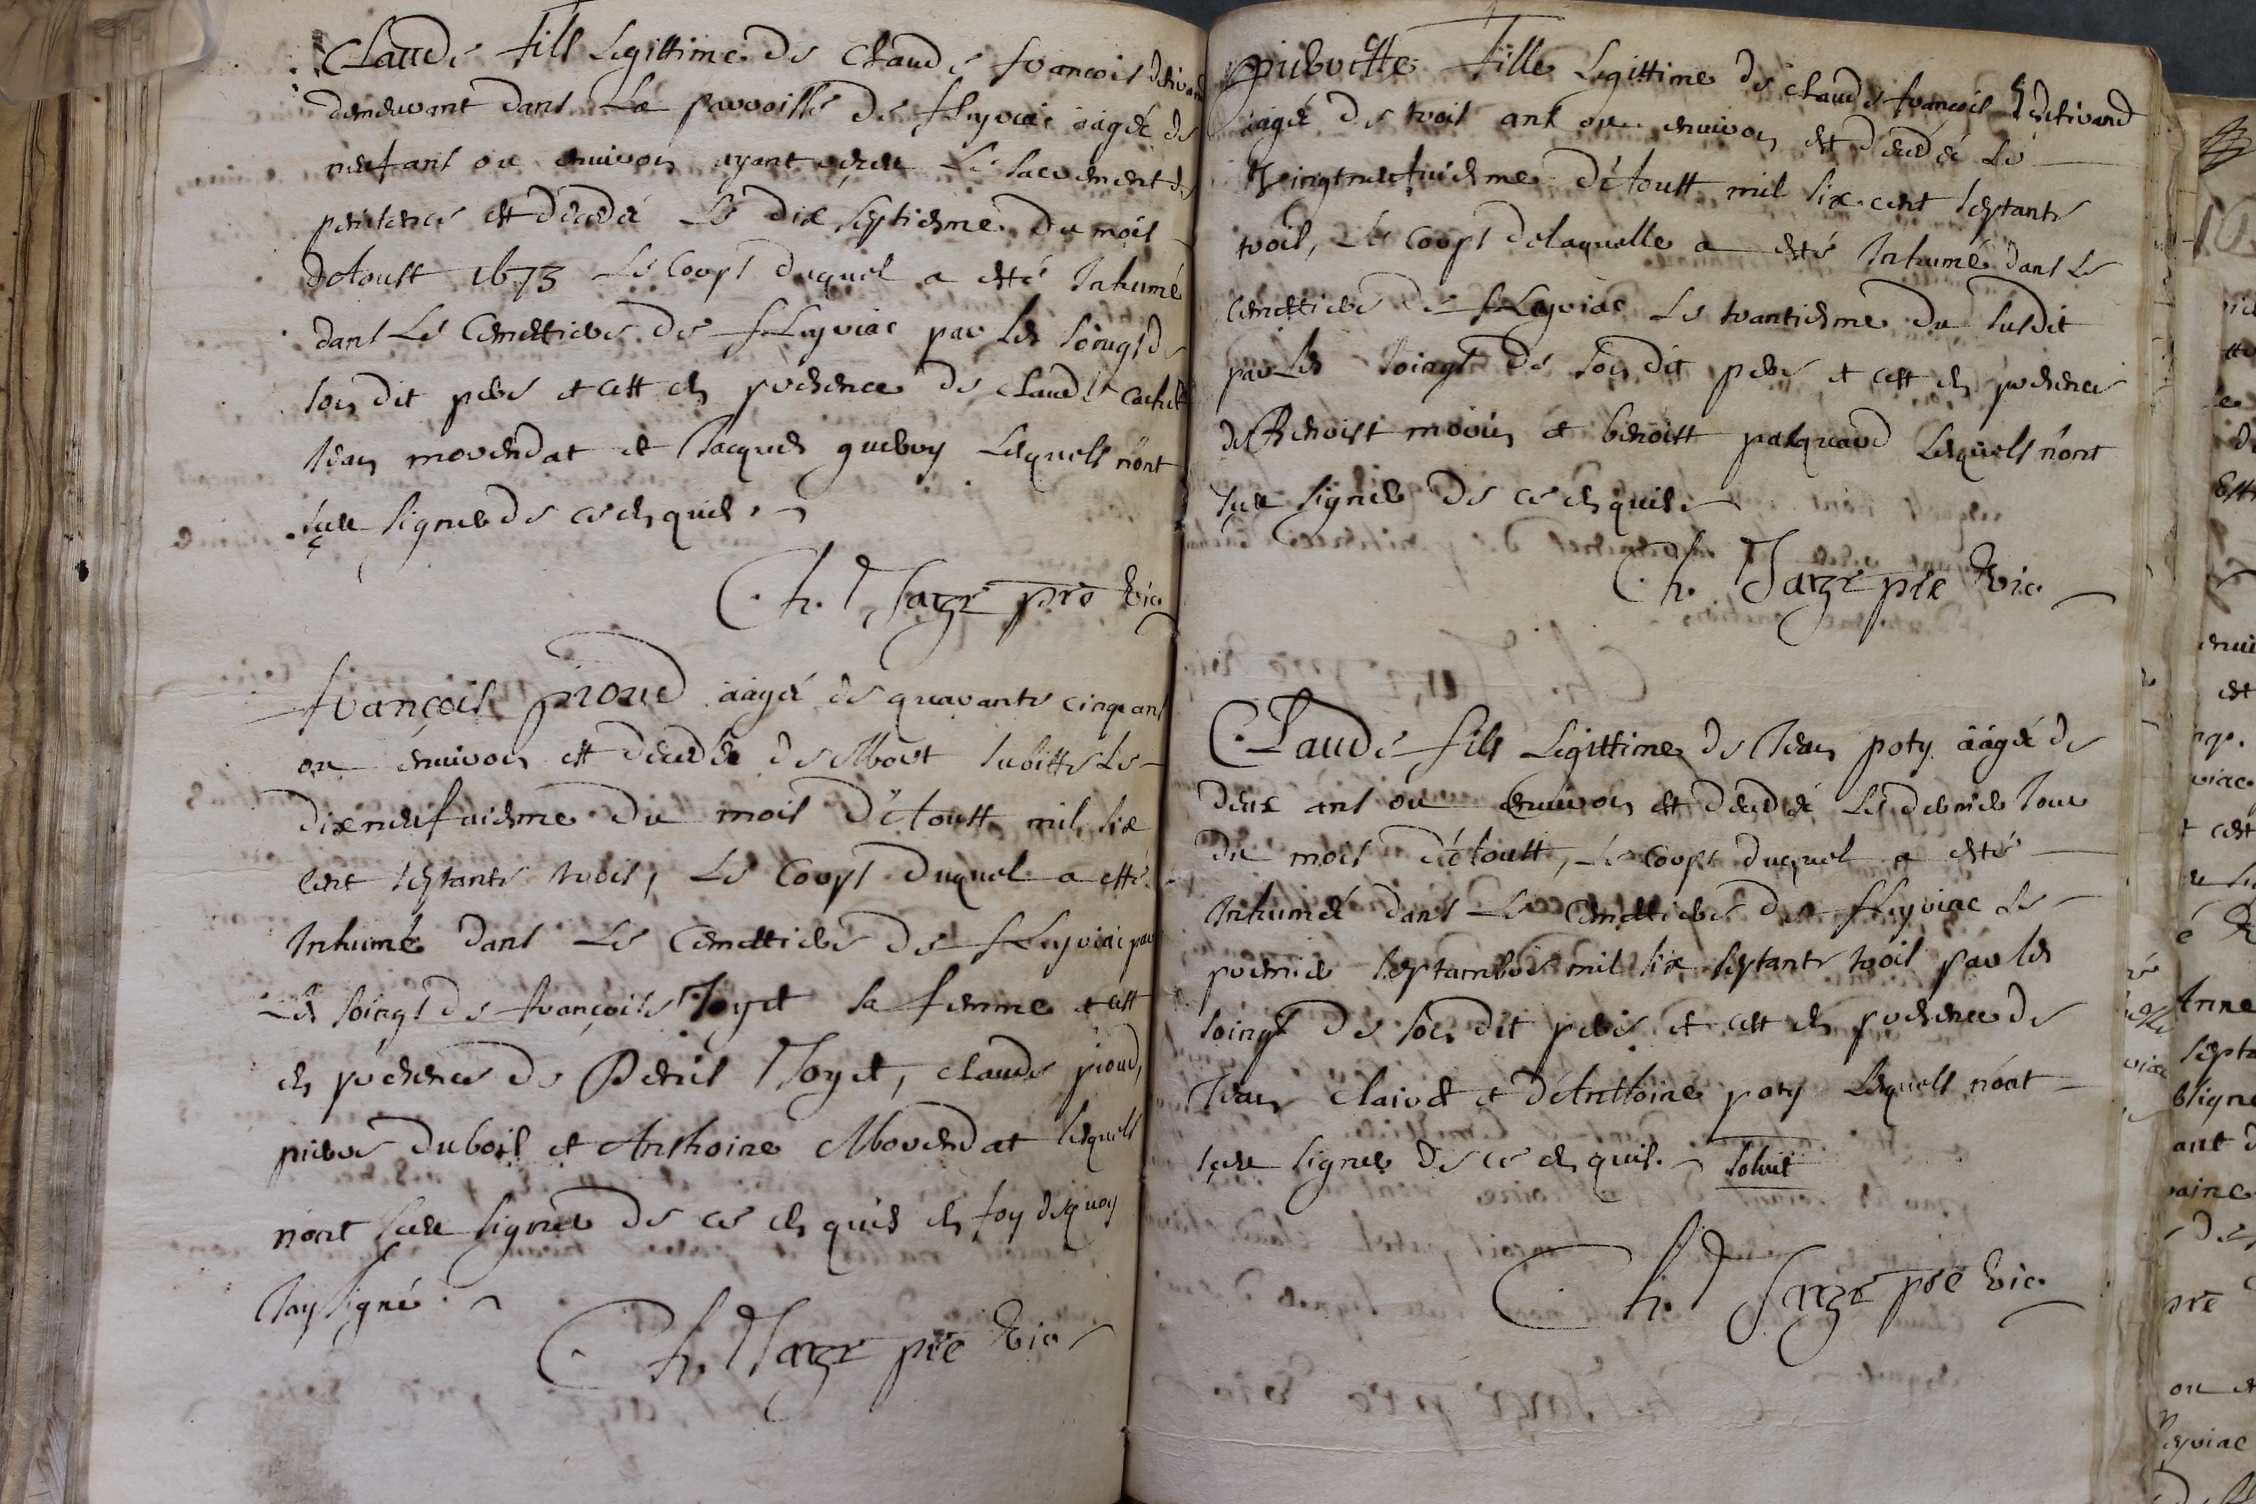 Claude fills legittime de Claude françois
demeurant dans La parroisse de fLeyriac aagée de
neuf ans ou environ ayant receu Le sacrement de
penitence est décédé Le dix septiesme du mois
d'Aoust 1673 Le Corps duquel a esté Inhumé
dans Le Cemettiere de fLeyriac par les soings de
son dit pere et cest en presence de claude
Jean morendat et Jacques guebuy Lesquels n'ont
sceu signer de ce enquis.
Ch. Sarge pre vic
françois pioud aagé de quarante cinq ans
ou environ est décédé de Mort subitte Le
dixneufviesme du mois d'Aoustt mil six
cent septante trois, Le Corps duquel a esté
Inhumé dans Le Cemettiere de fLeyriac par
Les soings de françoise Joyet sa femme et cest
en presence de Denis Joyet, claude pioud,
pierre dubois et Anthoine Morendat lesquels
n'ont sceu signer de ce enquis en foy dequoy
Jay signé.
Ch. Sarge pre vic
pierrette fille Legittime de claude françois
aagée de trois ans ou environ est décédée Le
Vingtneufviesme d'Aoustt mil six cent septante
trois, Le Corps delaquelle a esté Inhumé dans Le
Cemettiere de fLeyriac Le trantiesme du susdit
par Les soings de son dit pere et cest en presence
de Benoist morin et benoistt pasquaud Lesquels n'ont
sceu signer de ce enquis.
Ch. Sarge pre vic
Claude fils Legittime de Jean poty aagé de
deux ans ou environ est décédé Le dernier Jour
du mois d'Aoustt, Le Corps duquel a esté
Inhumé dans Le Cemettiere de fLeyriac Le
premier septambre mil six septante trois par les
soings de son dit pere et cest en presence de
Jean Clairet et d'Anttoine poty Lesquels n'ont
sceu signer de ce enquis. Solvit
Ch. Sarge pre vic